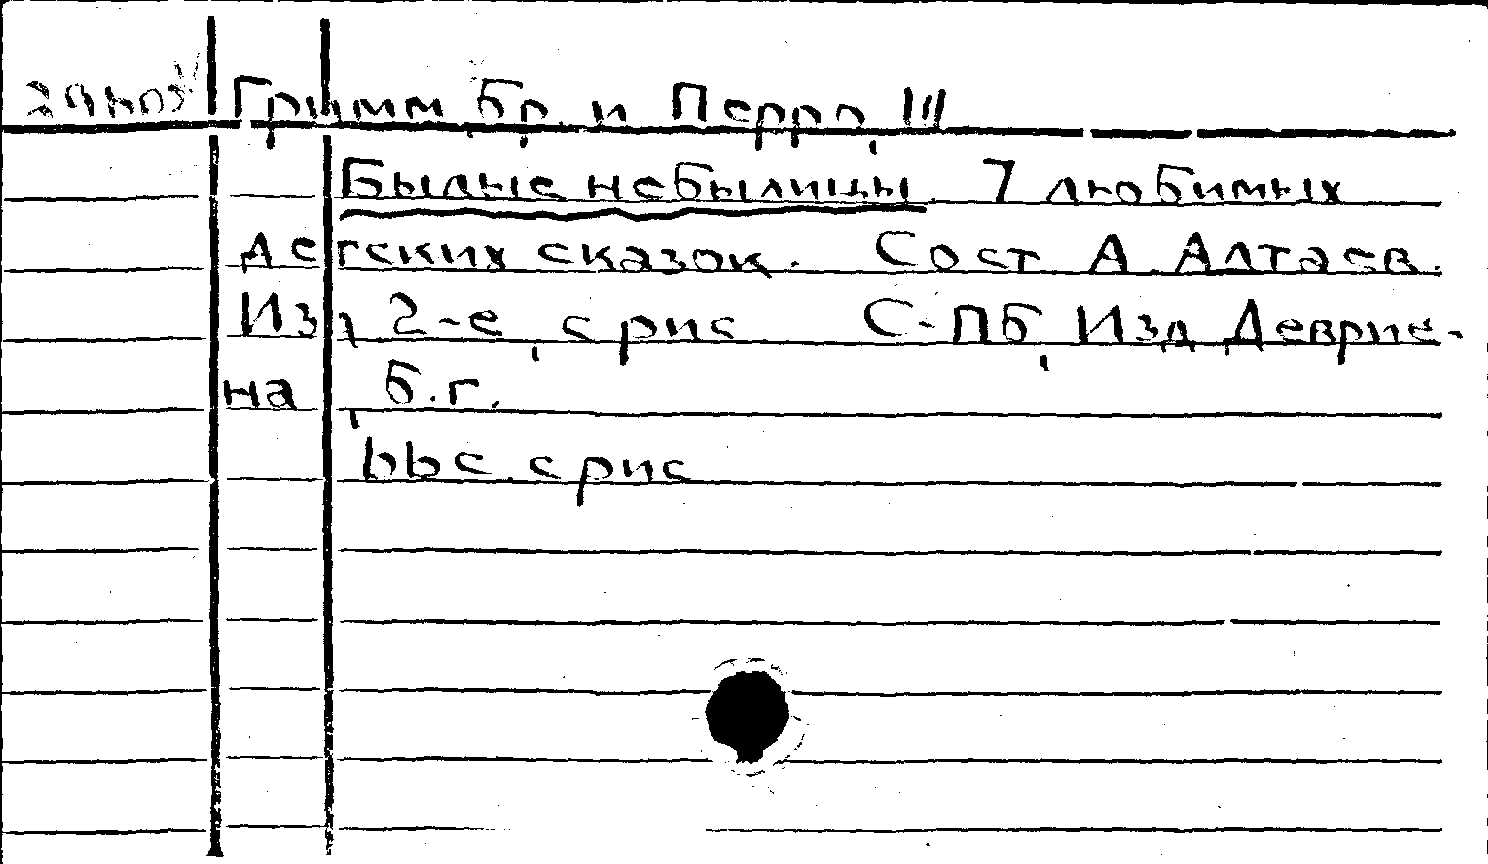 Гримм, бр. и Перро, Ш
Былые небылицы. 7 любимых
детских сказок. Сост. А. Алтаев.
Изд 2-е, с рис С-Пб, Изд Деврие-
на, б.г.
ььс. с рис